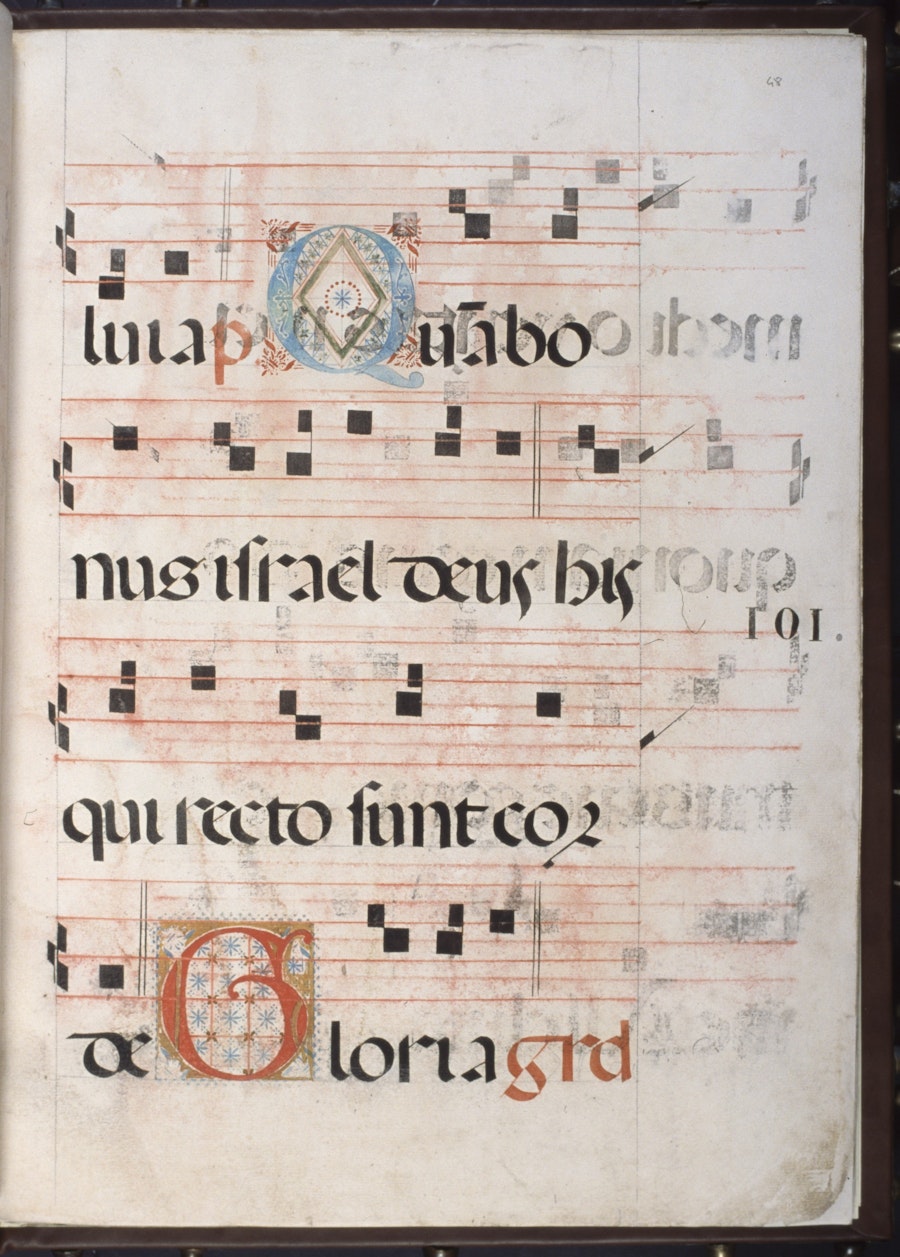 48
luia p Quābo
nus israel deus his
101.
qui recto sunt cor
de Gloria grd